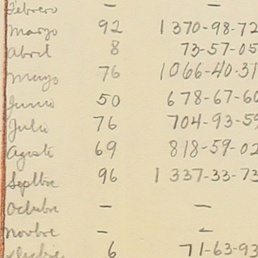 Febrero - -
Marzo 92 1370-98-72
Abril 8 73-57-05
Mayo 76 1066-40-31
Junio 50 678-67-60
Julio 76 704-93-59
Agosto 69 818-59-02
Septbre 96 1337-33-73
Octubre - -
Novbre - -
6 71-63-93